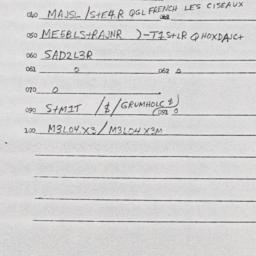 040 MAJSL/S+E4.R QGL FRENCH LES CISEAUX
050 ME6BLS+RAJNR )-T1S+LR Q HOXDAJC+
060 SAD2L3R
061 0 062 0
070 0
090 S+MIT /$/GRUMHOLC $)
091 0
100 M3LO4X3/M3LO4X3M